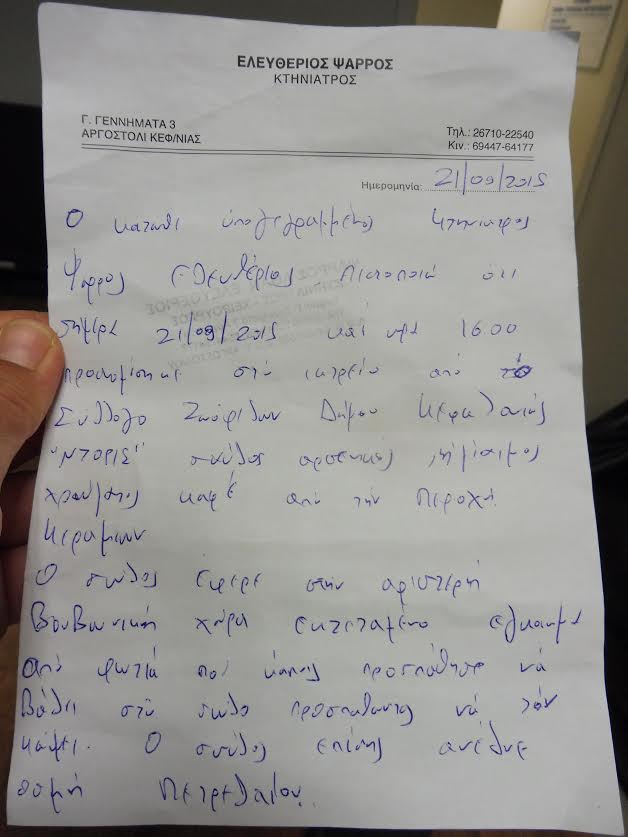 ΕΛΕΥΘΕΡΙΟΣ ΨΑΡΡΟΣ
ΚΤΗΝΙΑΤΡΟΣ
Γ. ΓΕΝΝΗΜΑΤΑ 3
ΑΡΓΟΣΤΟΛΙ ΚΕΦ/ΝΙΑΣ
Τηλ.: 26710-22540
Κιν.: 69447-64177
Ημερομηνία: 21/09/2015
Ο κατωθι υπογεγραμμένος Κτηνιατρος
Ψαρρος Ελευθέριος Πιστοποιώ ότι
σήμερα 21/09/2015 και ωρα 16.00
προσκομίστηκε στο ιατρείο από το
Σύλλογο Ζωόφιλων Δήμου Κεφαλονιάς
"ΝΤΟΡΙΣ" σκύλος αρσενικός ημίαιμος
χρώματος καφέ από την Περιοχή
Κεραμειων
Ο σκύλος έφερε στην αριστερή
Βουβωνική χώρα εκτεταμένο έλκωμα
από φωτιά που κάποιος προσπάθησε νά
Βάλει στο σκύλο προσπαθώντας νά τον
κάψει. Ο σκύλος επίσης ανέδυε
οσμή Πετρελαίου.